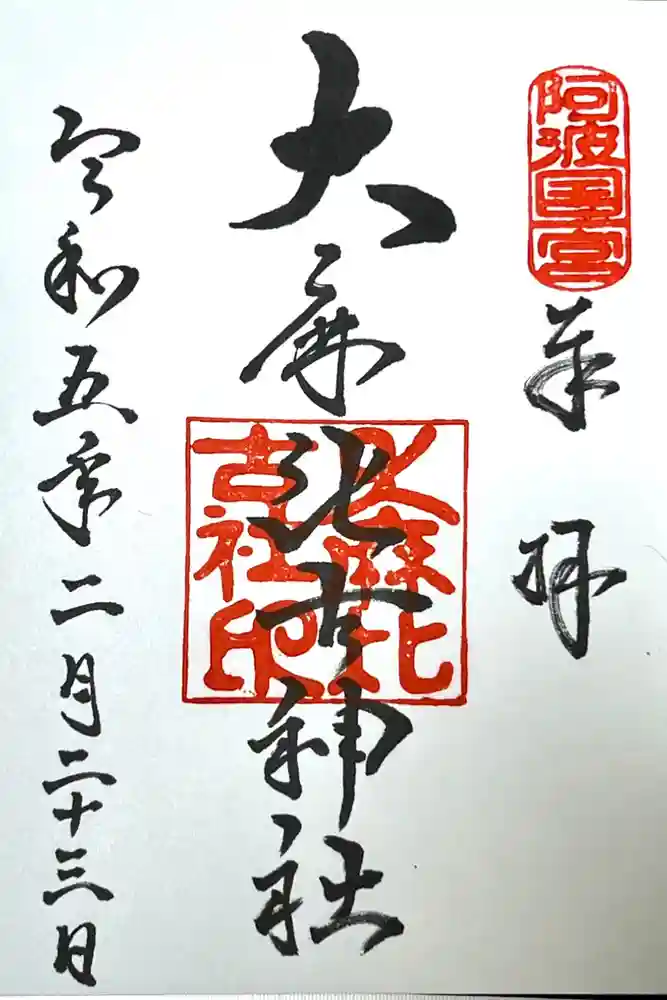 阿波国一宮
奉拝
大麻比古神社
大麻比古社印
令和五年二月二十三日